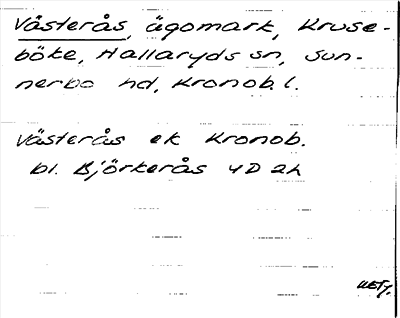 Västerås, ägomark, Kruse-
böke, Hallaryds sn, Sun-
nerbo hd, Kronob. l.
Västerås ek Kronob.
bl. Björkerås 4D 2h